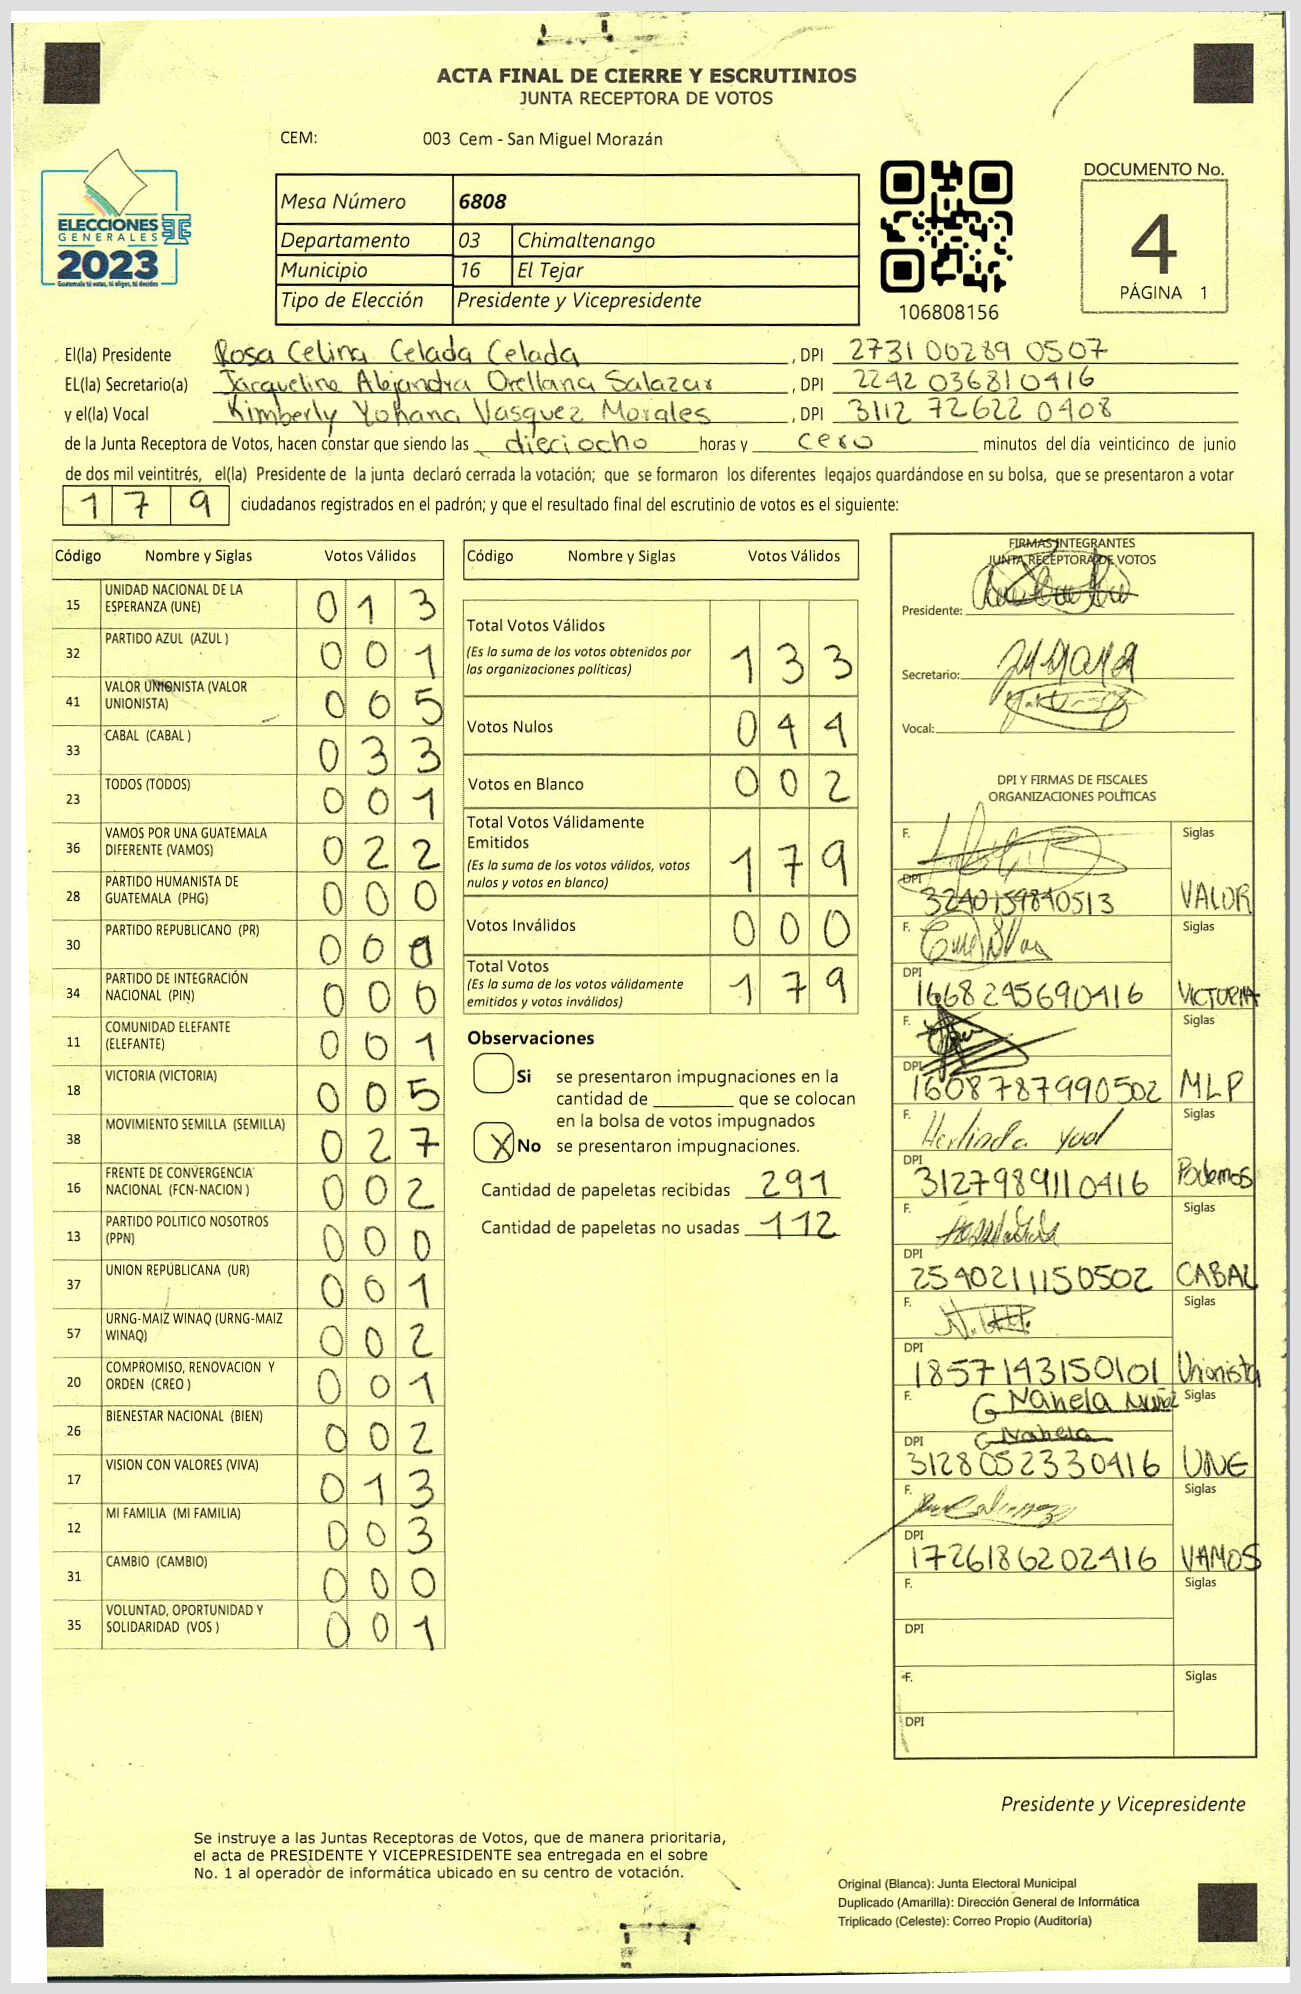 ACTA FINAL DE CIERRE Y ESCRUTINIOS
JUNTA RECEPTORA DE VOTOS
CEM: 003 Cem - San Miguel Morazán
ELECCIONES
GENERALES
2023
Guatemala tú votas, tú eliges, tú decides
Mesa Número 6808
Departamento 03 Chimaltenango
Municipio 16 El Tejar
Tipo de Elección Presidente y Vicepresidente
106808156
DOCUMENTO No.
4
PÁGINA 1
El(la) Presidente Rosa Celina Celada Celada, DPI 2731 00289 0507
EL(la) Secretario(a) Jacqueline Alejandra Orellana Salazar, DPI 2242 03681 0416
y el(la) Vocal Kimberly Yohana Vasquez Morales, DPI 3112 72622 0408
de la Junta Receptora de Votos, hacen constar que siendo las dieciocho horas y cero minutos del día veinticinco de junio
de dos mil veintitrés, el(la) Presidente de la junta declaró cerrada la votación; que se formaron los diferentes legajos quardándose en su bolsa, que se presentaron a votar
179 ciudadanos registrados en el padrón; y que el resultado final del escrutinio de votos es el siguiente:
Código Nombre y Siglas Votos Válidos
15 UNIDAD NACIONAL DE LA ESPERANZA (UNE) 013
32 PARTIDO AZUL (AZUL ) 001
41 VALOR UNIONISTA (VALOR UNIONISTA) 005
33 CABAL (CABAL ) 033
23 TODOS (TODOS) 001
36 VAMOS POR UNA GUATEMALA DIFERENTE (VAMOS) 022
28 PARTIDO HUMANISTA DE GUATEMALA (PHG) 000
30 PARTIDO REPUBLICANO (PR) 000
34 PARTIDO DE INTEGRACIÓN NACIONAL (PIN) 000
11 COMUNIDAD ELEFANTE (ELEFANTE) 001
18 VICTORIA (VICTORIA) 005
38 MOVIMIENTO SEMILLA (SEMILLA) 027
16 FRENTE DE CONVERGENCIA NACIONAL (FCN-NACION ) 002
13 PARTIDO POLITICO NOSOTROS (PPN) 000
37 UNION REPUBLICANA (UR) 001
57 URNG-MAIZ WINAQ (URNG-MAIZ WINAQ) 002
20 COMPROMISO, RENOVACION Y ORDEN (CREO ) 001
26 BIENESTAR NACIONAL (BIEN) 002
17 VISION CON VALORES (VIVA) 013
12 MI FAMILIA (MI FAMILIA) 003
31 CAMBIO (CAMBIO) 000
35 VOLUNTAD, OPORTUNIDAD Y SOLIDARIDAD (VOS ) 001
Código Nombre y Siglas Votos Válidos
Total Votos Válidos
(Es la suma de los votos obtenidos por las organizaciones políticas) 133
Votos Nulos 044
Votos en Blanco 002
Total Votos Válidamente Emitidos
(Es la suma de los votos válidos, votos nulos y votos en blanco) 179
Votos Inválidos 000
Total Votos
(Es la suma de los votos válidamente emitidos y votos inválidos) 179
Observaciones
Si se presentaron impugnaciones en la
cantidad de ________ que se colocan
en la bolsa de votos impugnados
X No se presentaron impugnaciones.
Cantidad de papeletas recibidas 291
Cantidad de papeletas no usadas 112
FIRMAS INTEGRANTES
JUNTA RECEPTORA DE VOTOS
Presidente:
Secretario:
Vocal:
DPI Y FIRMAS DE FISCALES
ORGANIZACIONES POLÍTICAS
F. Siglas
DPI 3240159840513 VALOR
F. Siglas
DPI 1668245690416 VICTORIA
F. Siglas
DPI 1608787990502 MLP
F. Herlinda Siglas
DPI 3127989110416 Podemos
F. Siglas
DPI 2540211150502 CABAL
F. Siglas
DPI 1857143150101 Unionista
F. G Nahela Muñoz Siglas
G Nahela
DPI 3128052330416 UNE
F. Siglas
DPI 1726186202416 VAMOS
F. Siglas
DPI
F. Siglas
DPI
Presidente y Vicepresidente
Se instruye a las Juntas Receptoras de Votos, que de manera prioritaria,
el acta de PRESIDENTE Y VICEPRESIDENTE sea entregada en el sobre
No. 1 al operador de informática ubicado en su centro de votación.
Original (Blanca): Junta Electoral Municipal
Duplicado (Amarilla): Dirección General de Informática
Triplicado (Celeste): Correo Propio (Auditoría)